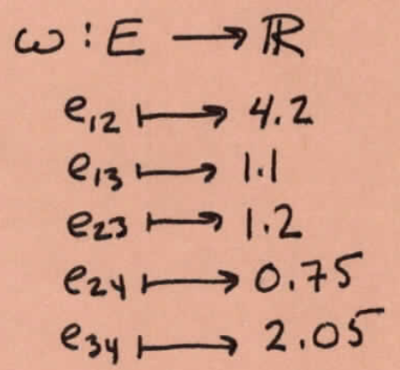 ω : E ⟶ ℝ
e₁₂ ⟼ 4.2
e₁₃ ⟼ 1.1
e₂₃ ⟼ 1.2
e₂₄ ⟼ 0.75
e₃₄ ⟼ 2.05